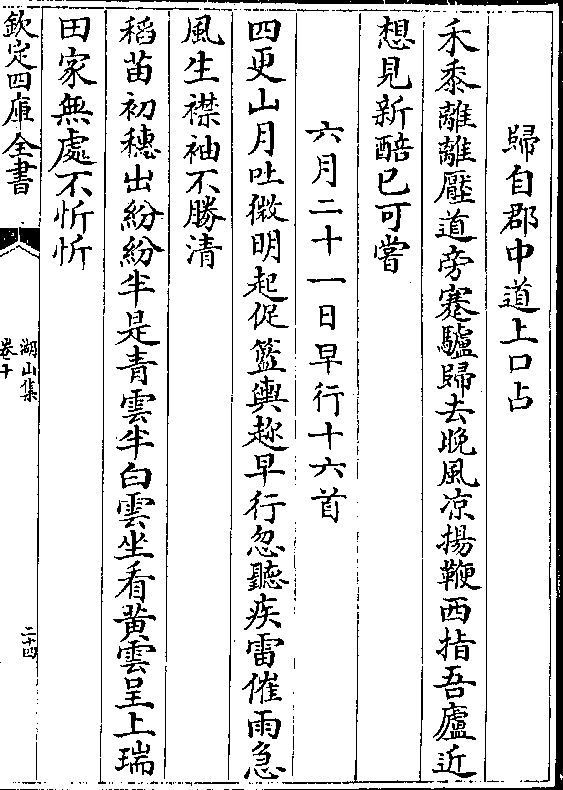 歸自郡中道上口占
禾黍離離壓道旁蹇驢歸去晚風凉揚鞭西指吾廬近
想見新醅已可嘗
六月二十一日早行十六首
四更山月吐微明起促籃輿趂早行忽聽疾雷催雨急
風生襟袖不勝清
稻苗初穗出紛紛半是青雲半白雲坐看黄雲呈上瑞
田家無處不忻忻
欽定四庫全書
湖山集
卷十
二十四